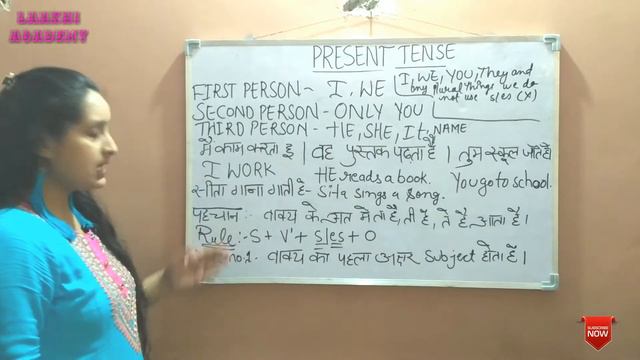 LAAKHI
ACADEMY
PRESENT TENSE
FIRST PERSON- I, WE
I, WE, YOU, They and
any plural things we do
not use s/es (X)
SECOND PERSON-ONLY YOU
THIRD PERSON - HE, SHE, It, NAME
मै काम करता हू | वह पुस्तक पढ़ता है | तुम स्कूल जाते हो
I WORK HE reads a book. You go to school.
सीता गाना गाती है- Sita sings a song.
पहचान:- वाक्य के अंत मे ता है, ती है, ते है आता है।
Rule:- S + V' + s/es + O
no.1. वाक्य का पहला अक्षर Subject होता है।
SUBSCRIBE
NOW